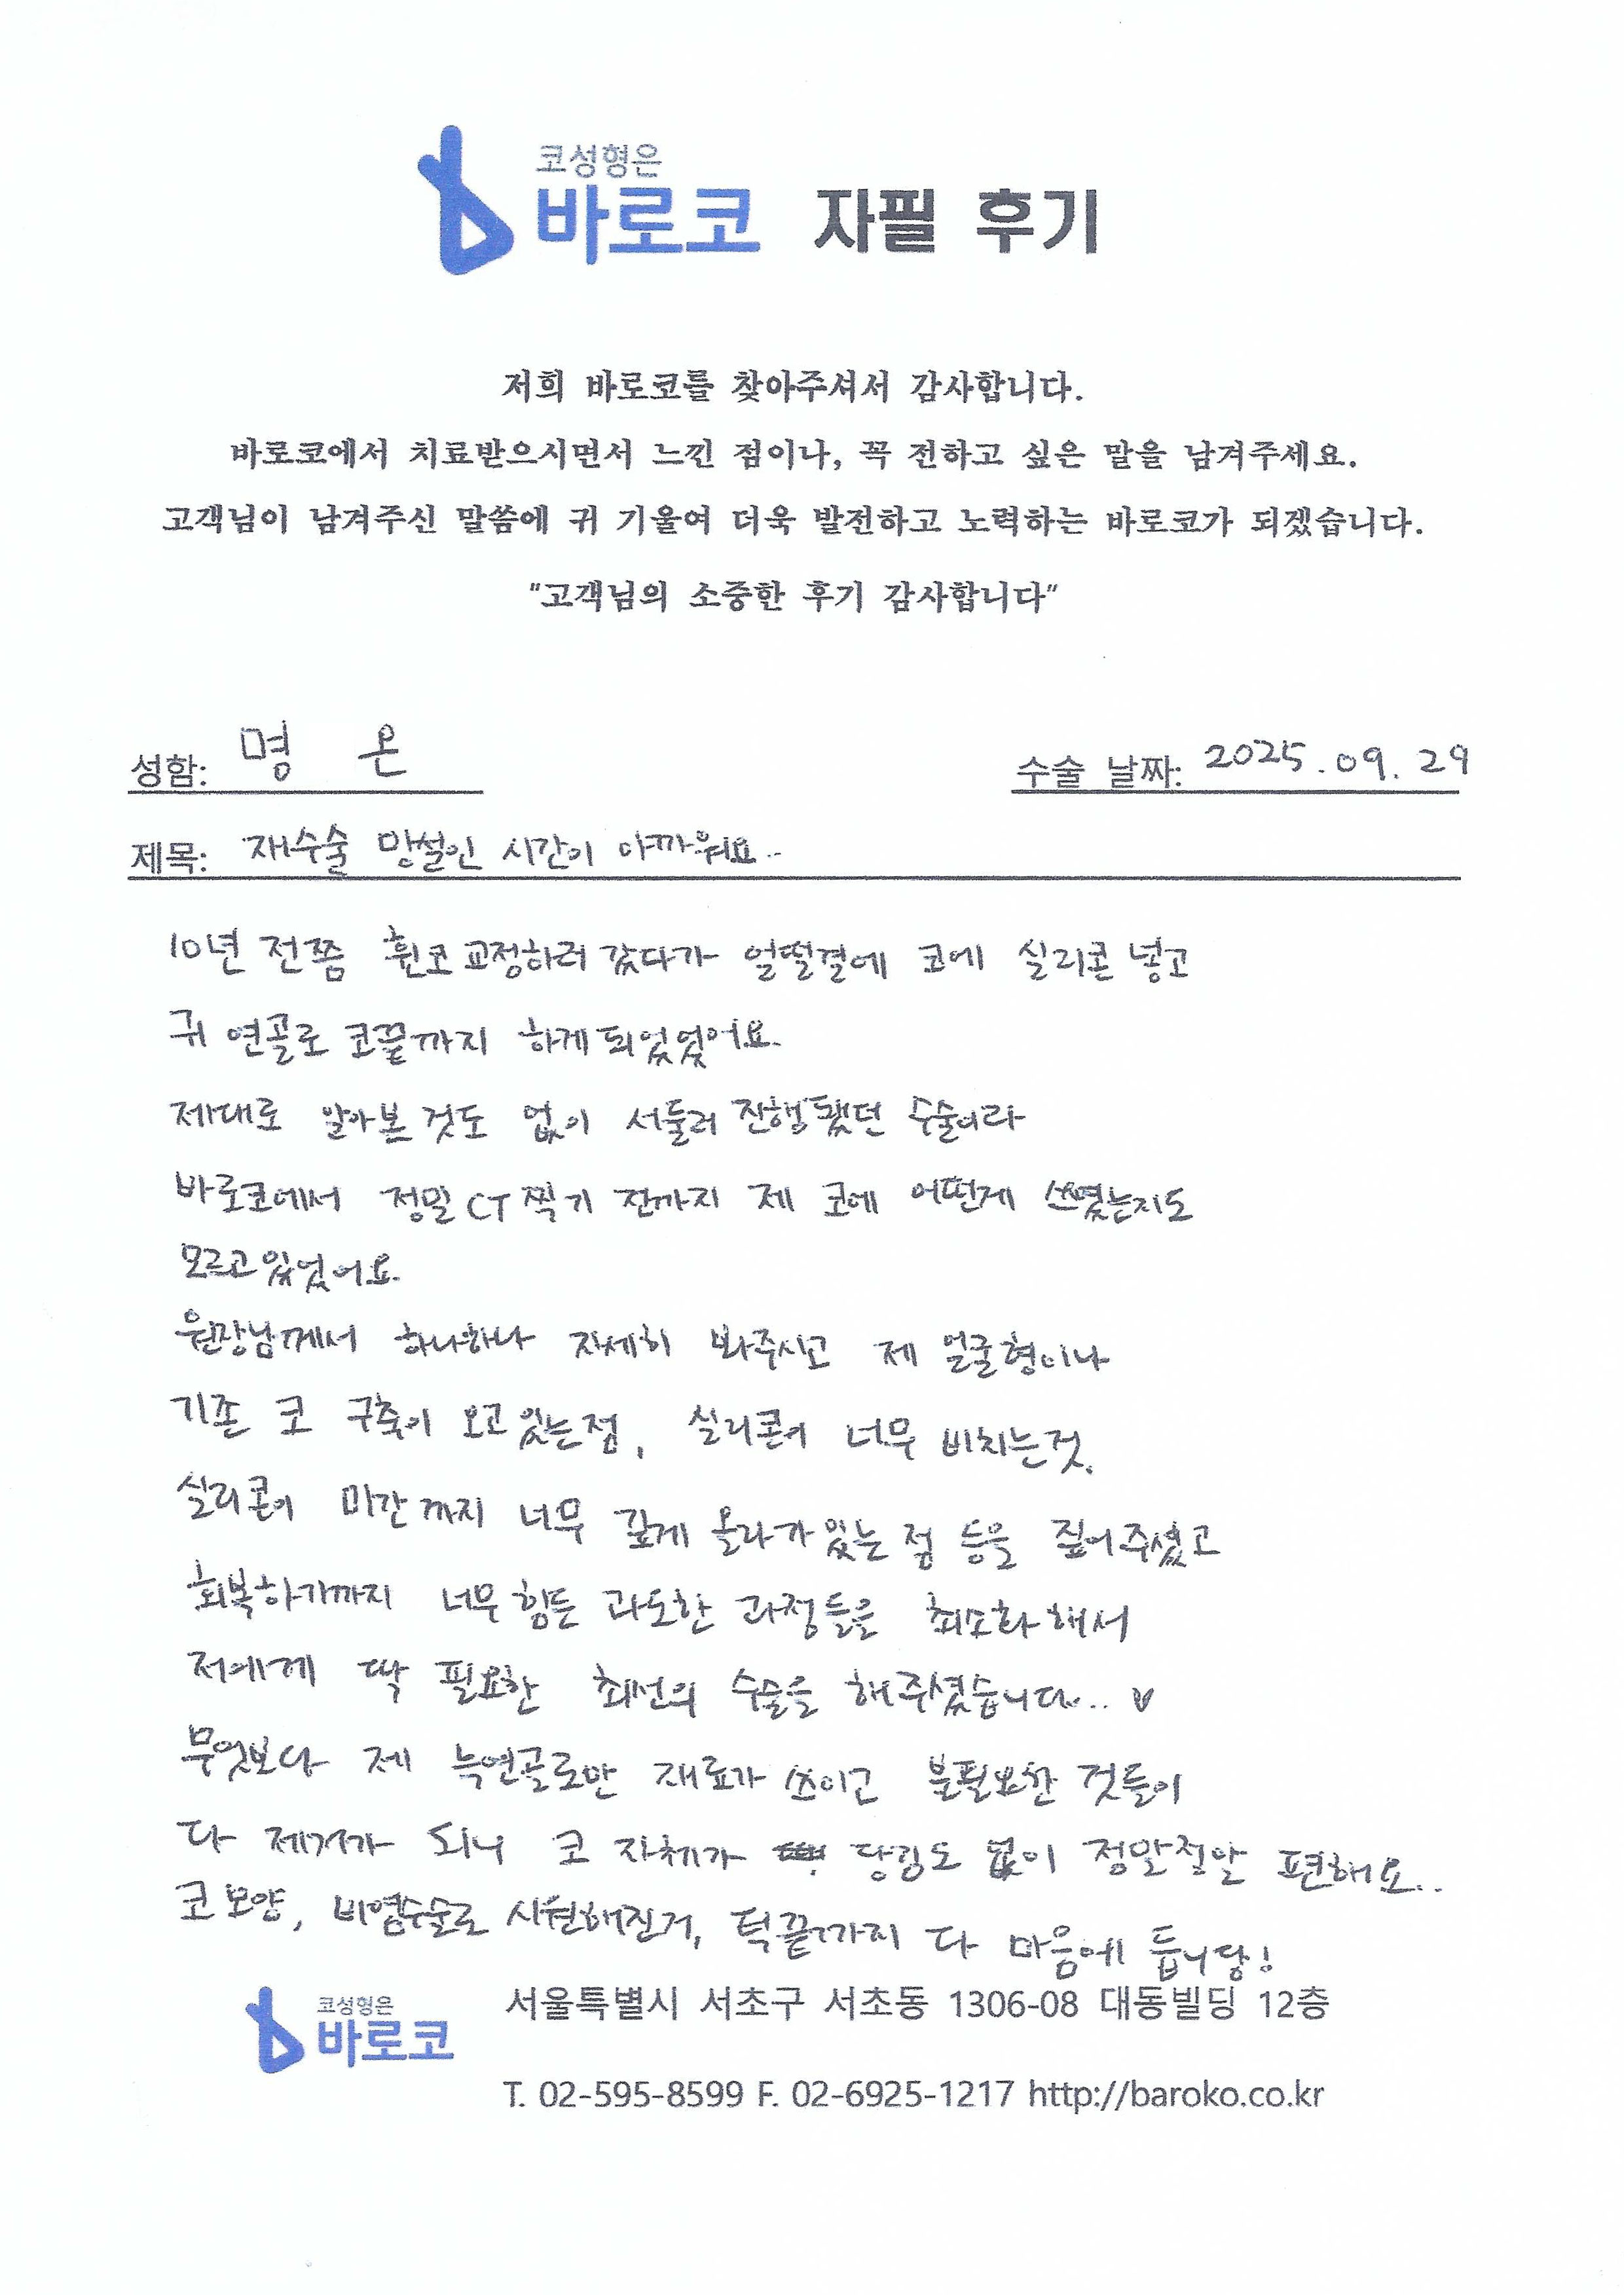 코성형은
바로코 자필 후기
저희 바로코를 찾아주셔서 감사합니다.
바로코에서 치료받으시면서 느낀 점이나, 꼭 전하고 싶은 말을 남겨주세요.
고객님이 남겨주신 말씀에 귀 기울여 더욱 발전하고 노력하는 바로코가 되겠습니다.
"고객님의 소중한 후기 감사합니다"
성함: 명 온 수술 날짜: 2025.09.29
제목: 재수술 망설인 시간이 아까워요..
10년 전쯤 휜코 교정하러 갔다가 얼떨결에 코에 실리콘 넣고
귀 연골로 코끝까지 하게되었었어요.
제대로 알아본 것도 없이 서둘러 진행됐던 수술이라
바로코에서 정밀 CT 찍기 전까지 제 코에 어떤게 쓰였는지도
모르고있었어요.
원장님께서 하나하나 자세히 봐주시고 제 얼굴형이나
기존 코 구축이 오고있는점, 실리콘이 너무 비치는것,
실리콘이 미간까지 너무 깊게 올라가있는 점 등을 짚어주셨고
회복하기까지 너무 힘든 과도한 과정들을 최소화해서
저에게 딱 필요한 최선의 수술을 해주셨습니다.. ♥
무엇보다 제 늑연골로만 재료가 쓰이고 불필요한 것들이
다 제거가 되니 코 자체가 당김도 없이 정말정말 편해요..
코모양, 비염수술로 시원해진거, 턱끝까지 다 마음에 듭니당!
코성형은
바로코
서울특별시 서초구 서초동 1306-08 대동빌딩 12층
T. 02-595-8599 F. 02-6925-1217 http://baroko.co.kr